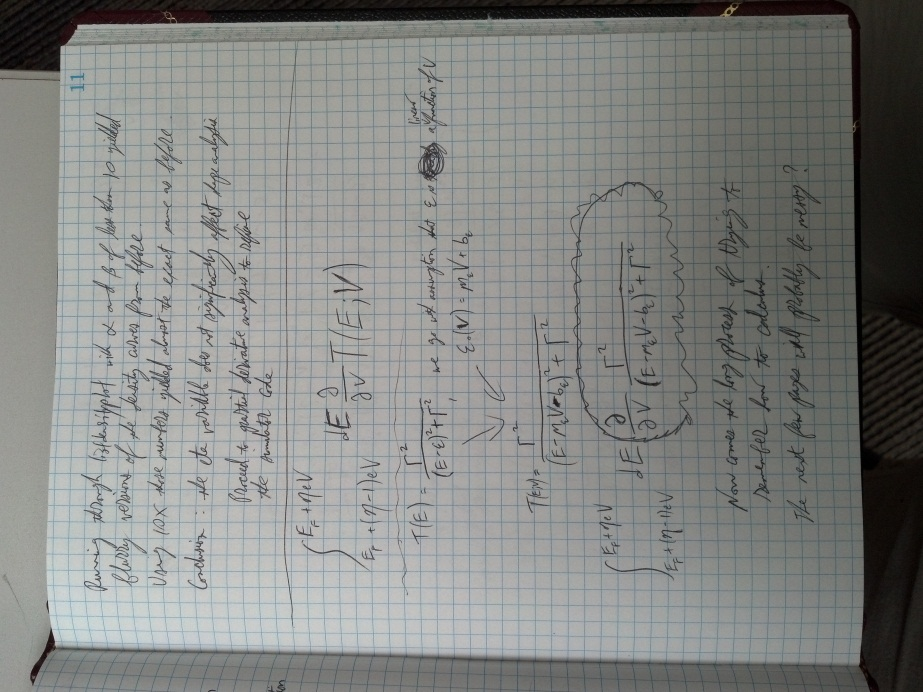 11
Running through with α and β of less than 10 yielded
blurry versions of the density curves from before
Using 10x those numbers yielded almost the exact same as before.
Conclusion: the eta variable does not significantly affect analysis
Proceed to partial derivative analysis to refine
the simulator code
∫_{E_F + (η-1)eV}^{E_F + ηeV} dE ∂/∂V T(E;V)
T(E) = Γ²/((E-ε)²+Γ²), we go with assumption that ε is a linear function of V
ε → ε(V) = m_ε V + b_ε
T(E;V) = Γ²/((E-m_ε V-b_ε)²+Γ²)
∫_{E_F + (η-1)eV}^{E_F + ηeV} dE ∂/∂V Γ²/((E-m_ε V-b_ε)²+Γ²)
Now comes the long process of trying to
remember how to calculus.
The next few pages will probably be messy?